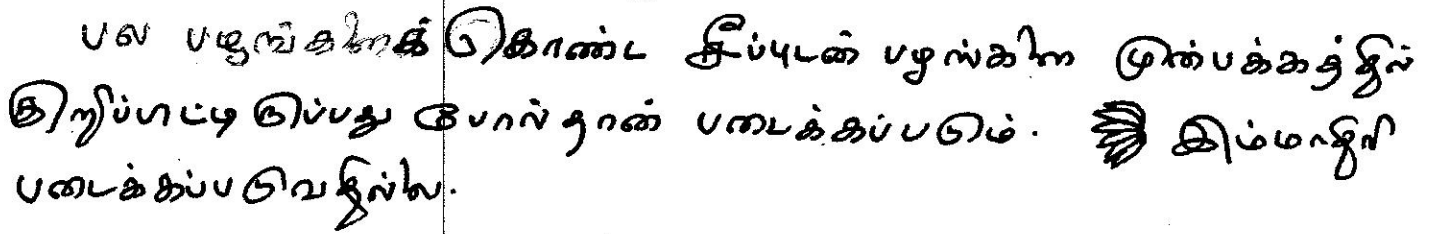 பல பழங்களைக் கொண்ட சீப்புடன் பழங்களை முன்பக்கத்தில்
குறிப்பிட்டிருப்பது போல்தான் படைக்கப்படும். இம்மாதிரி
படைக்கப்படுவதில்லை.